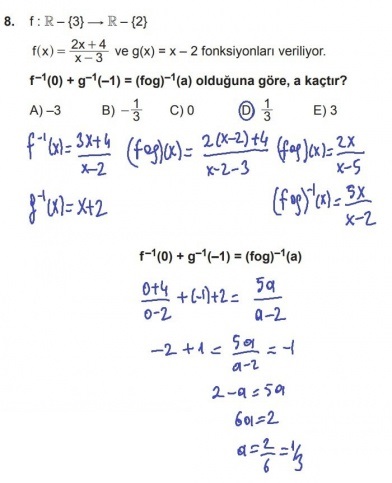 8. f : ℝ – {3} → ℝ – {2}
f(x) = (2x + 4)/(x – 3) ve g(x) = x – 2 fonksiyonları veriliyor.
f⁻¹(0) + g⁻¹(–1) = (fog)⁻¹(a) olduğuna göre, a kaçtır?
A) –3 B) –1/3 C) 0 D) 1/3 E) 3
f⁻¹(x) = (3x+4)/(x-2) (fog)(x) = (2(x-2)+4)/(x-2-3) (fog)(x) = 2x/(x-5)
g⁻¹(x) = x+2 (fog)⁻¹(x) = 5x/(x-2)
f⁻¹(0) + g⁻¹(–1) = (fog)⁻¹(a)
(0+4)/(0-2) + (-1)+2 = 5a/(a-2)
-2+1 = 5a/(a-2) = -1
2-a = 5a
6a = 2
a = 2/6 = 1/3